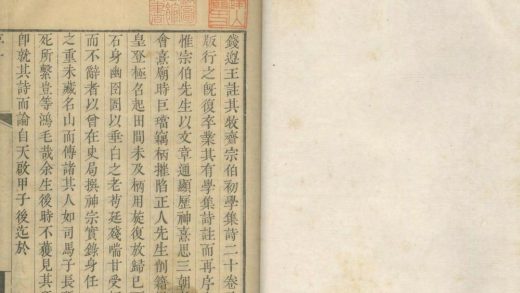 錢遵王註其牧齋宗伯初學集詩二十卷
版行之旣復卒業其有學集詩註而再序
惟宗伯先生以文章通顯歷神熹思三朝
會熹廟時巨璫竊柄摧陷正人先生削籍
皇登極名起田間未及柄用旋復放歸已
石身幽囹圄以垂白之老苟延殘喘甘受
而不辭者以曾在史局撰神宗實錄身任
之重未藏名山而傳諸其人如司馬子長
死所繫豈等鴻毛哉余生後時不獲見其
卽就其詩而論自天啟甲子後迄於